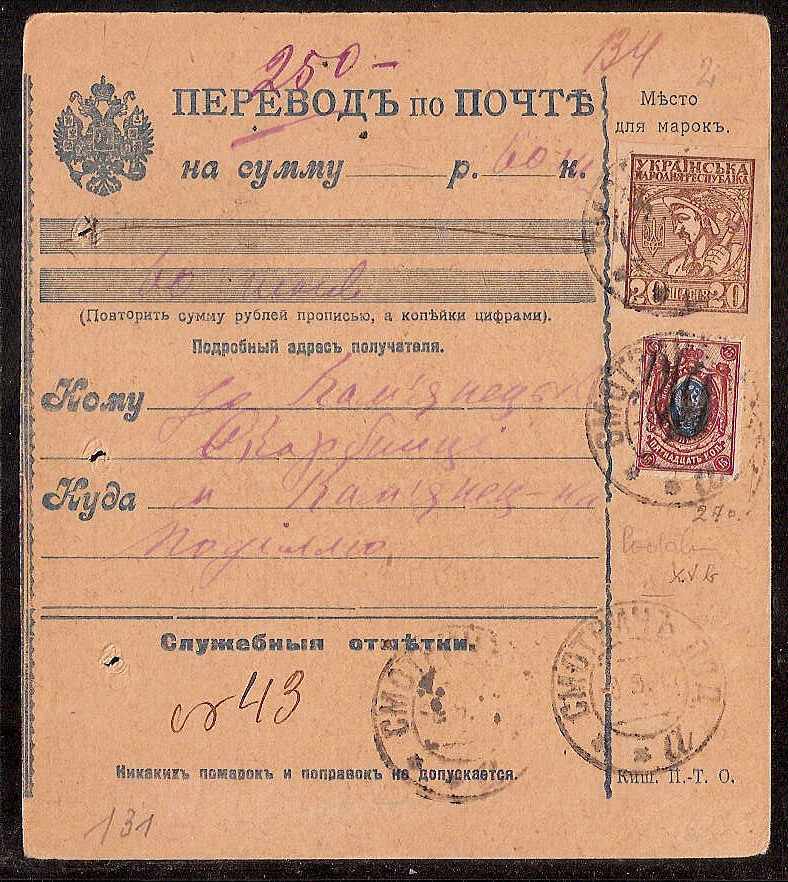 250-
134
2
ПЕРЕВОДЪ по ПОЧТѢ
Мѣсто
для марокъ.
на сумму р. 60 к.
УКРАЇНСЬКА
НАРОДНЯ РЕСПУБЛІКА
20 20
60
(Повторить сумму рублей прописью, а копѣйки цифрами).
Подробный адресъ получателя.
15 15
ПЯТНАДЦАТЬ КОП.
15 15
Кому до Кам'янецької
Скарбниці
Куда м Кам'янец-на
Поділлю
270.
XVb
Служебныя отмѣтки.
СМОТРИЧЪ ПОД.
СМОТРИЧЪ
№ 43
Никакихъ помарокъ и поправокъ не допускается.
Киш. П.-Т. О.
131